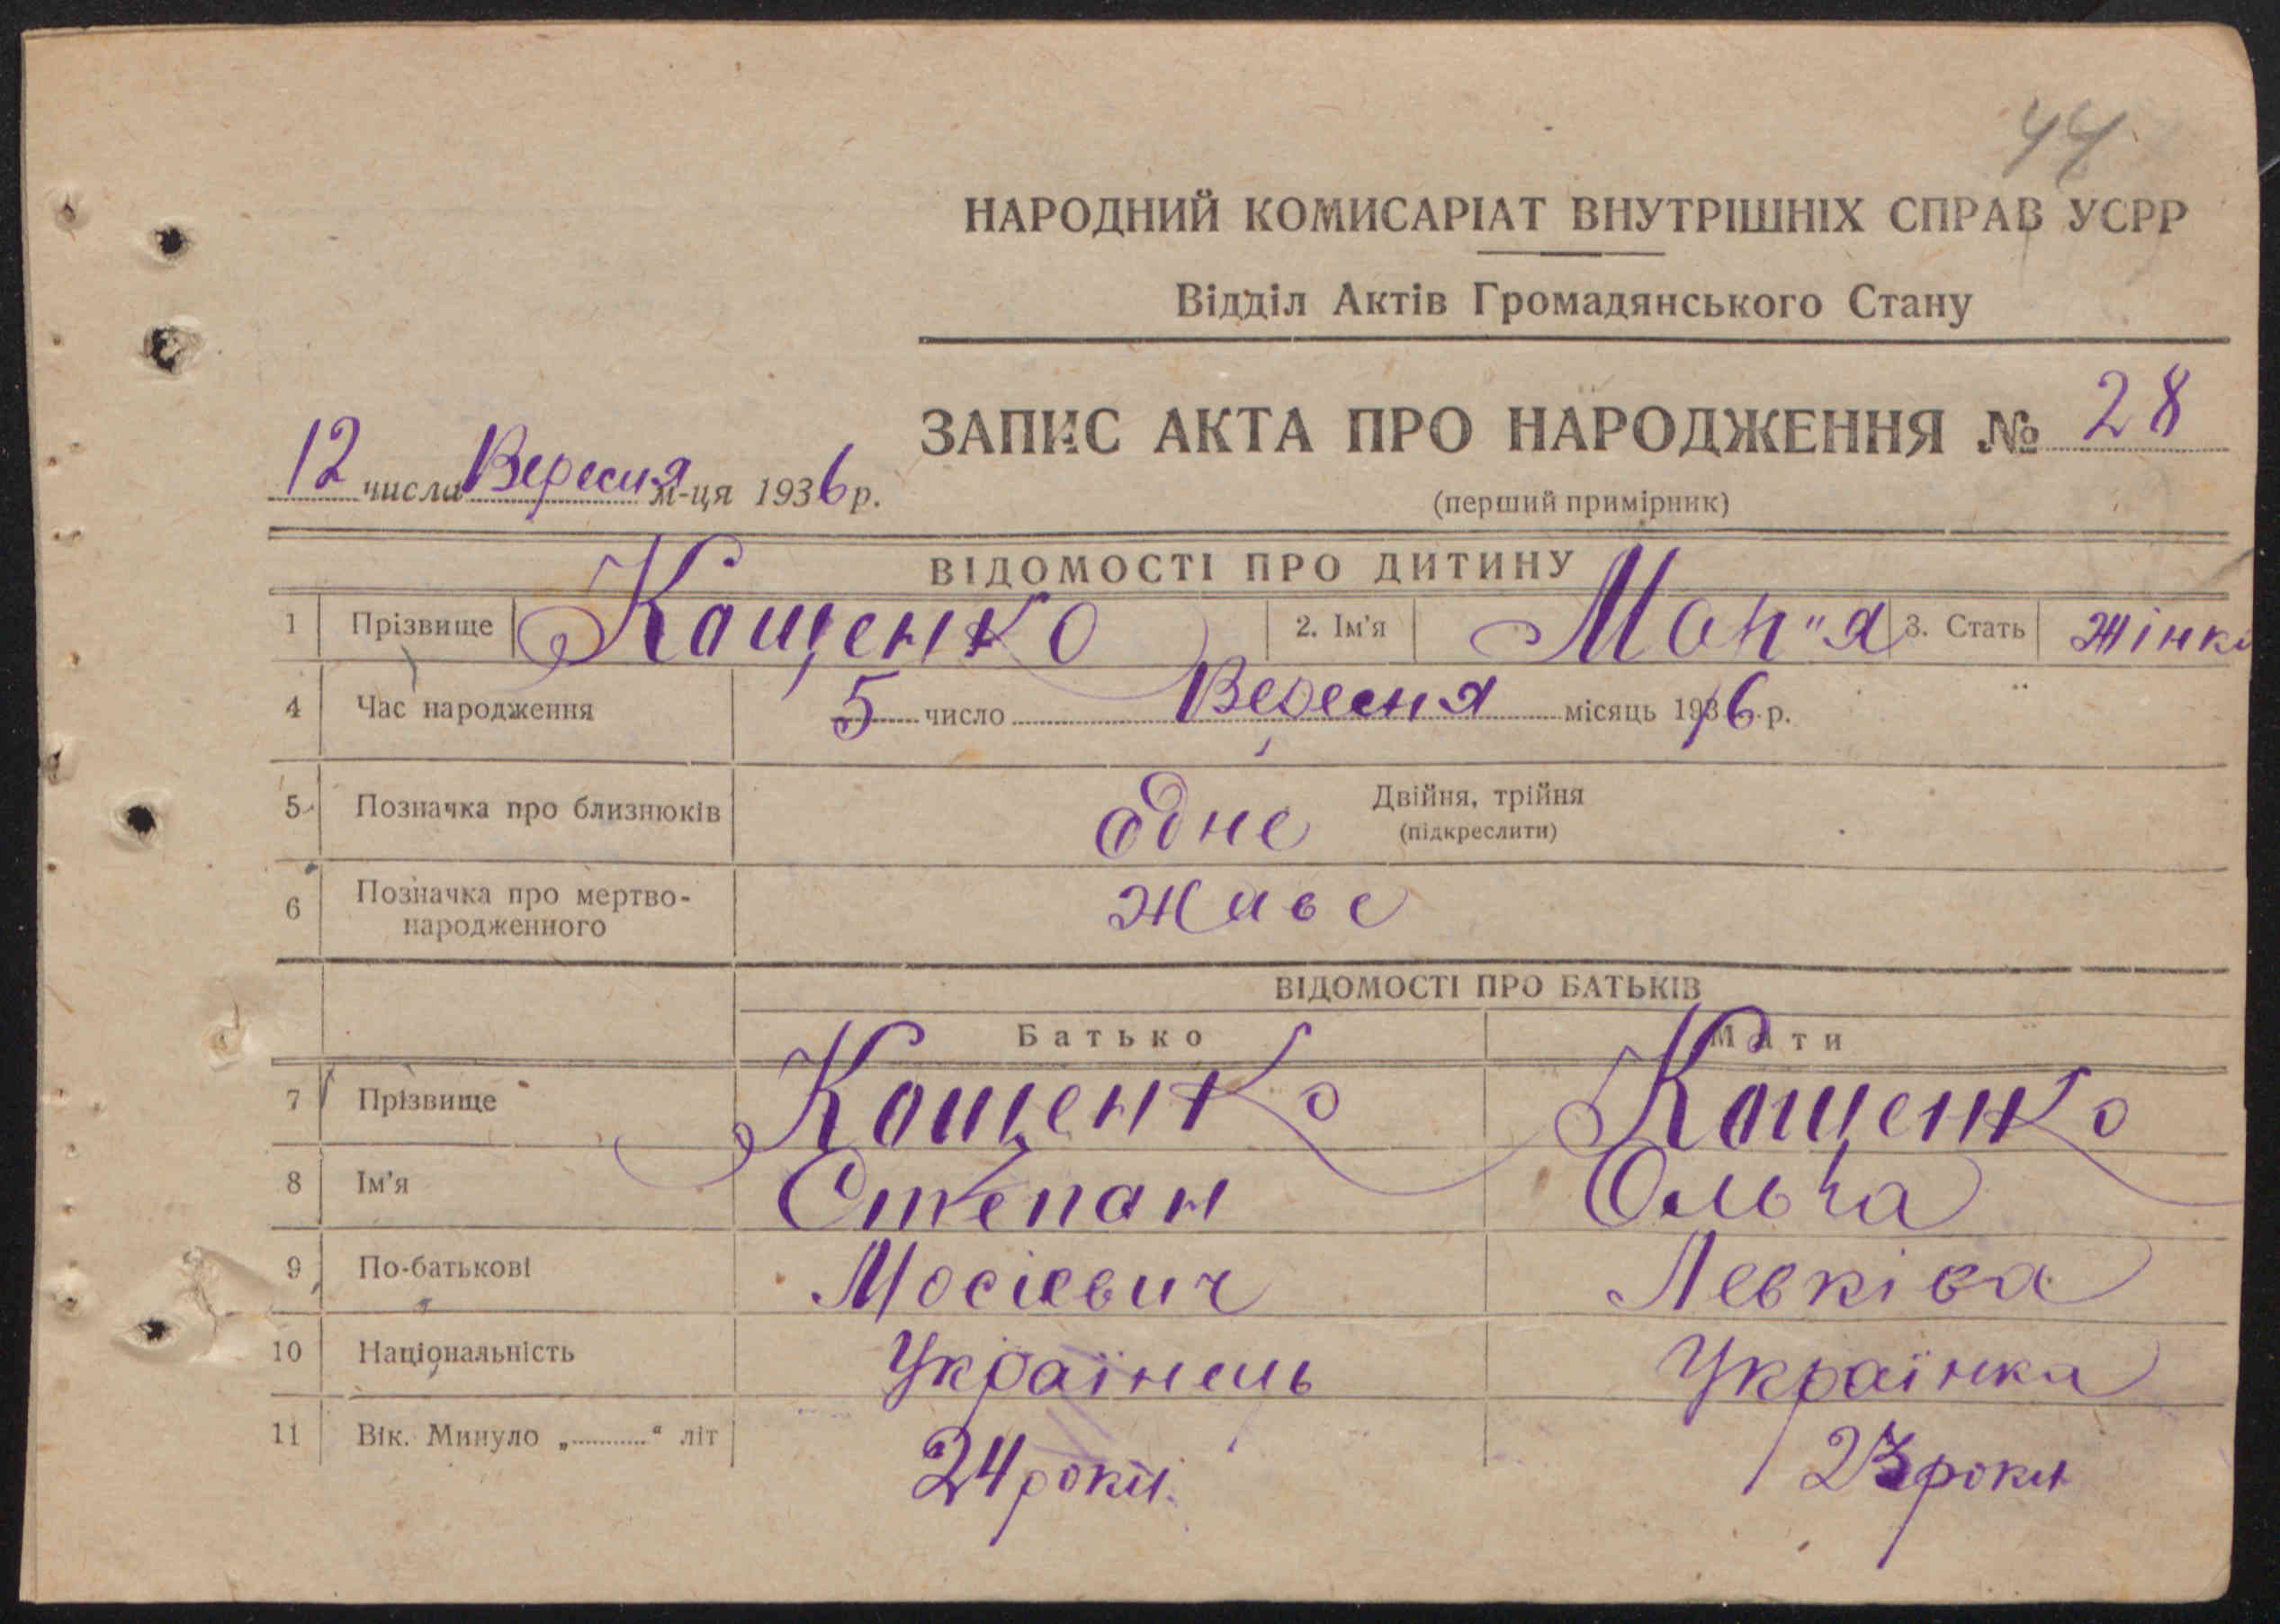 44
НАРОДНИЙ КОМИСАРІАТ ВНУТРІШНІХ СПРАВ УСРР
Відділ Актів Громадянського Стану
ЗАПИС АКТА ПРО НАРОДЖЕННЯ № 28
12 числа Вересня м-ця 1936 р.
(перший примірник)
ВІДОМОСТІ ПРО ДИТИНУ
1 Прізвище Кащенко 2. Ім'я Ман"я 3. Стать жінка
4 Час народження 5 число Вересня місяць 1936 р.
5 Позначка про близнюків одне Двійня, трійня
(підкреслити)
6 Позначка про мертво-
народженного живе
ВІДОМОСТІ ПРО БАТЬКІВ
Батько Мати
7 Прізвище Кащенко Кащенко
8 Ім'я Степан Ольга
9 По-батькові Мосієвич Левківа
10 Національність Українець Українка
11 Вік. Минуло „..........“ літ 24 роки. 23 роки